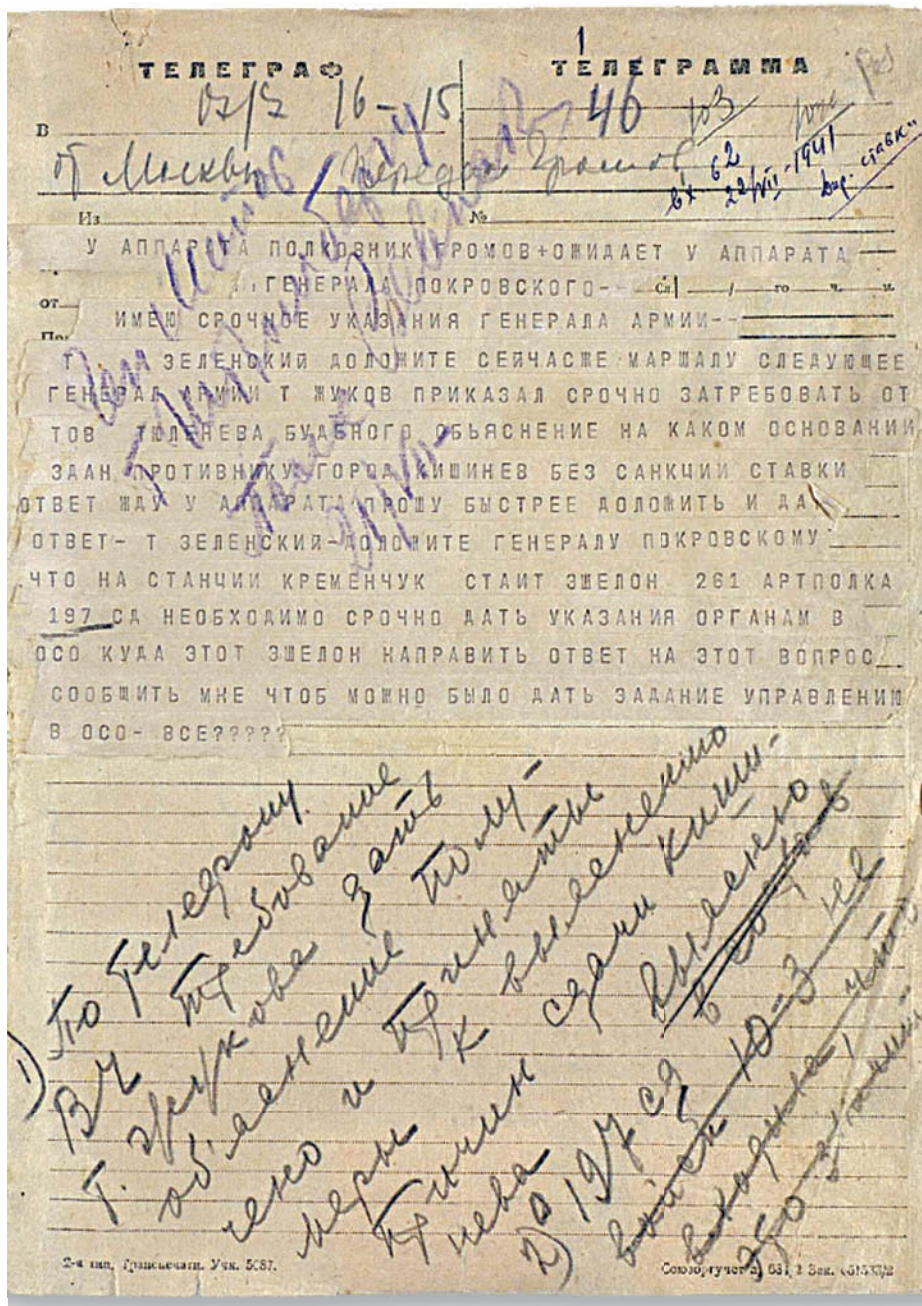 1
ТЕЛЕГРАФ ТЕЛЕГРАММА
16-15 46
В
от Москвы Передал Громов
вх 62
22/VII-1941
Из №
У АППАРАТА ПОЛКОВНИК ГРОМОВ+ОЖИДАЕТ У АППАРАТА
ГЕНЕРАЛА ПОКРОВСКОГО--
от
ИМЕЮ СРОЧНОЕ УКАЗАНИЯ ГЕНЕРАЛА АРМИИ--
Т ЗЕЛЕНСКИЙ ДОЛОЖИТЕ СЕЙЧАСЖЕ МАРШАЛУ СЛЕДУЮЩЕЕ
ГЕНЕРАЛ АРМИИ Т ЖУКОВ ПРИКАЗАЛ СРОЧНО ЗАТРЕБОВАТЬ ОТ
ТОВ ТЮЛЕНЕВА БУДЬНОГО ОБЬЯСНЕНИЕ НА КАКОМ ОСНОВАНИИ
ЗДАН ПРОТИВНИКУ ГОРОД КИШИНЕВ БЕЗ САНКЦИИ СТАВКИ
ОТВЕТ ЖДУ У АППАРАТА ПРОШУ БЫСТРЕЕ ДОЛОЖИТЬ И ДА
ОТВЕТ- Т ЗЕЛЕНСКИЙ-ДОЛОЖИТЕ ГЕНЕРАЛУ ПОКРОВСКОМУ
ЧТО НА СТАНЦИИ КРЕМЕНЧУК СТАИТ ЭШЕЛОН 261 АРТПОЛКА
197 СД НЕОБХОДИМО СРОЧНО ДАТЬ УКАЗАНИЯ ОРГАНАМ В
ОСО КУДА ЭТОТ ЭШЕЛОН НАПРАВИТЬ ОТВЕТ НА ЭТОТ ВОПРОС
СООБЩИТЬ МНЕ ЧТОБ МОЖНО БЫЛО ДАТЬ ЗАДАНИЕ УПРАВЛЕНИЮ
В ОСО- ВСЕ?????
1) По телефону
ВЧ требование
т. Жукова дать
объяснение полу-
чено и приняты
меры к выяснению
причин сдачи Киши-
нева
2) О 197 сд выяснено
в войск 10-3 не
входила, что
2-я тип. Трансжелат. Учк. 5687.